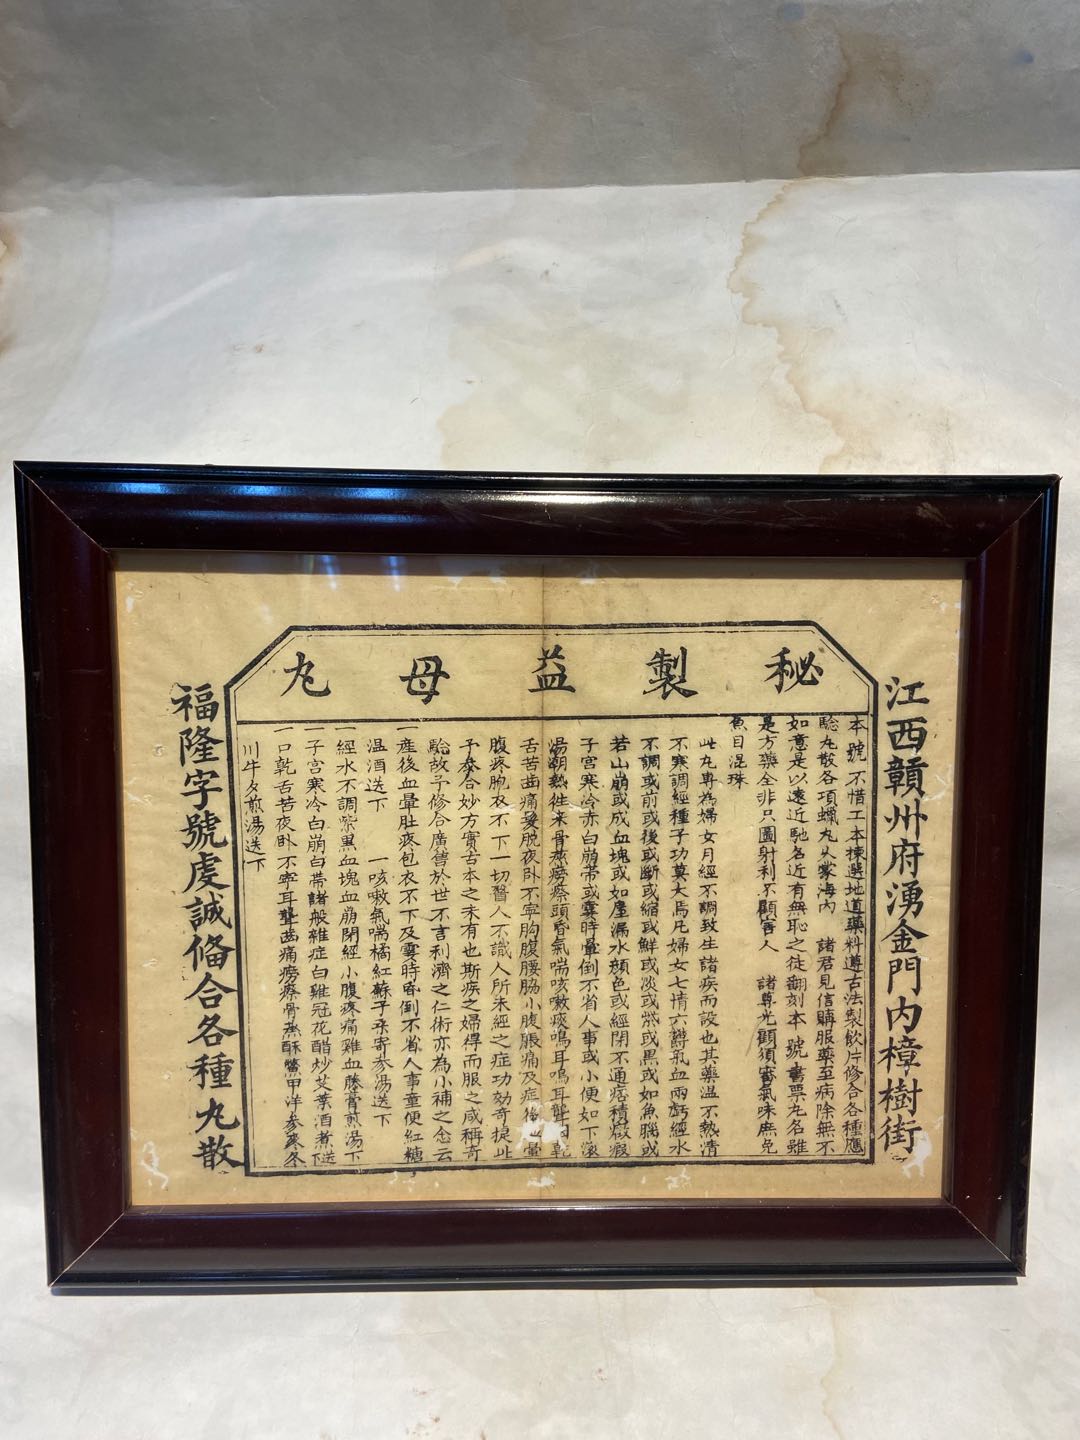 江西贛州府湧金門內樟樹街
秘製益母丸
本號不惜工本揀選地道藥料遵古法製飲片修合各種應
驗丸散各項蠟丸久蒙海內 諸君見信購服藥至病除無不
如意是以遠近馳名近有無恥之徒翻刻本號書票丸名雖
是方藥全非只圖射利不顧害人 諸尊光顧須審氣味庶免
魚目混珠
此丸專為婦女月經不調致生諸疾而設也其藥溫不熱清
不寒調經種子功莫大焉凡婦女七情六欝氣血兩虧經水
不調或前或後或斷或縮或鮮或淡或紫或黑或如魚腦或
若山崩或成血塊或如屋漏水顏色或經閉不通痞積癥瘕
子宮寒冷赤白崩帶或霎時暈倒不省人事或小便如下滾
湯潮熱徃來骨蒸癆瘵頭昏氣喘咳嗽痰鳴耳嗚耳聾口乾
舌苦齒痛髮脫夜卧不寧胸腹腰脇小腹脹痛及症後血暈
腹疼胞衣不下一切醫人不識人所未經之症功効奇提此
予叅合妙方實古本之未有也斯疾之婦得而服之咸稱奇
驗故予修合廣售於世不言利濟之仁術亦為小補之念云
一產後血暈肚疼包衣不下及霎時昏倒不省人事童便紅糖
溫酒送下 一咳嗽氣喘橘紅蘇子桑寄參湯送下
一經水不調紫黑血塊血崩閉經小腹疼痛雞血藤膏煎湯下
一子宮寒冷白崩白帶諸般雜症白雞冠花醋炒艾葉酒煮送下
一口乾舌苦夜卧不寧耳聾齒痛癆瘵骨蒸酥鱉甲洋參麥冬
川牛夕煎湯送下
福隆字號虔誠修合各種丸散